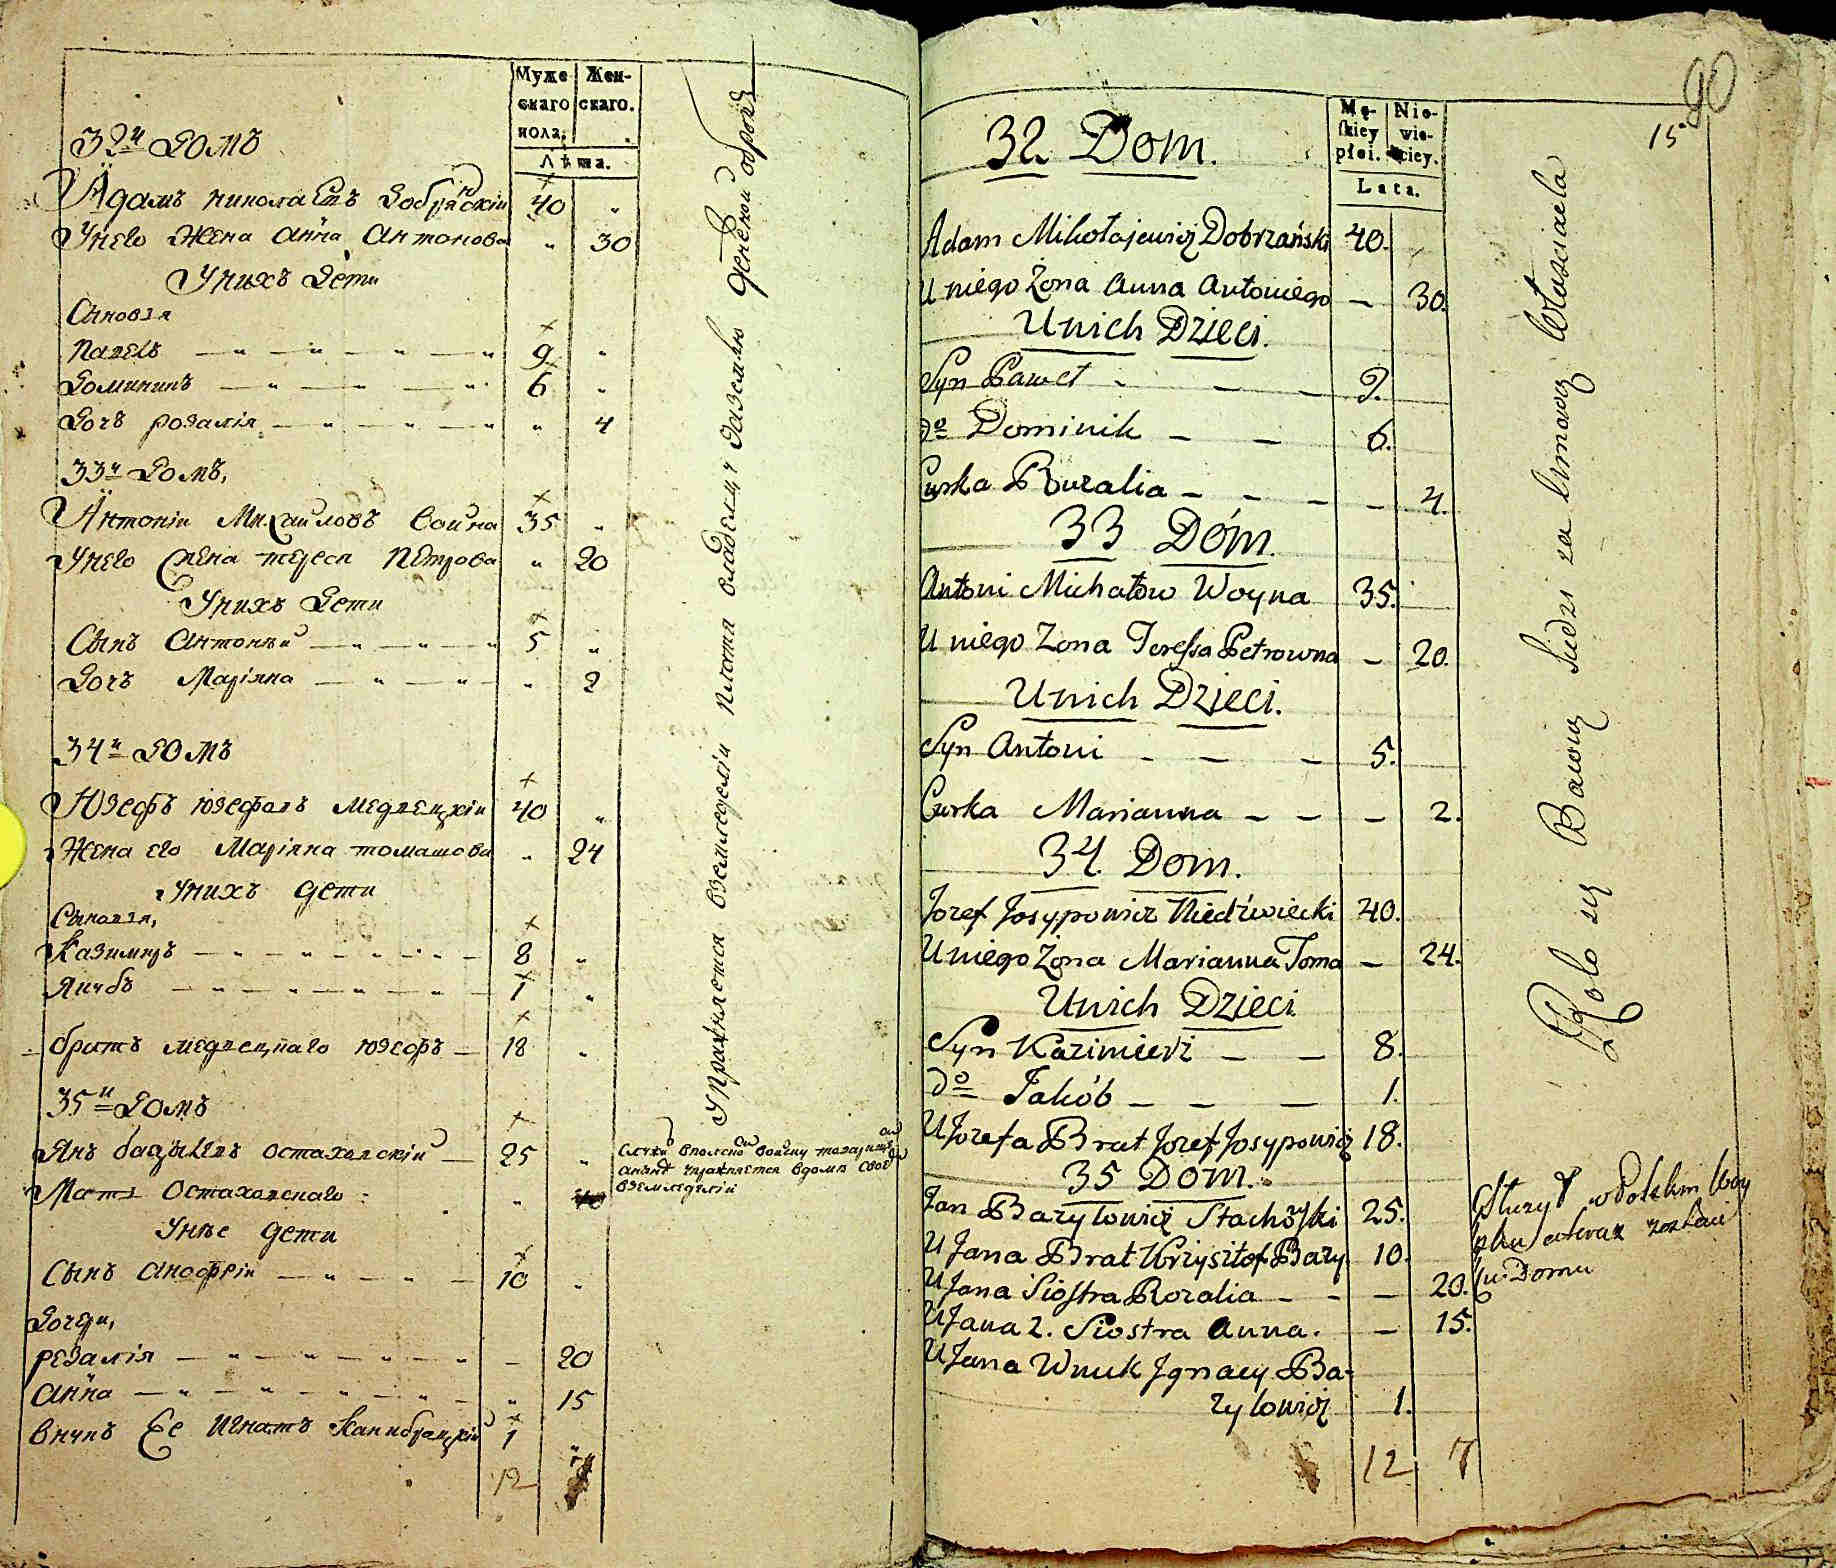 Муже
скаго
пола.
Жен-
скаго.
Лѣта.
32й Домъ
Адамъ николаевъ Добрянскій 40 "
Унего Жена анна Антонова " 30
Унихъ Дети
Сыновья
Павелъ — " — " — " — " 9 "
Доминикъ — " — " — " 6 "
Дочь розалія — " — " — " " 4
33й Домъ,
Антоній Михайловъ Война 35 "
Унего Жена тереса Петрова " 20
Унихъ Дети
Сынъ Антоній — " — " — " 5 "
Дочь Маріяна — " — " — " 2
34й Домъ
Юзефъ юзефовъ медвецкій 40 "
Жена его Маріяна томашова " 24
Унихъ дети
Сыновья,
Казимиръ — " — " — " — 8 "
Якубъ — " — " — " — " — 1 "
братъ медвецкаго юзефъ — 18 "
35й Домъ
Янъ базылевъ остаховскій — 25 "
Мать Остаховскаго " 40
Унее дети
Сынъ Анофрій — " — " — 10 "
Дочери,
розалія — " — " — " — " — 20
анна — " — " — " — " " 15
внукъ Ее Игнатъ 1 "
12 7
Упражняется вземледеліи платя владельцу Заземлю денежной оброкъ
Служи вполской войску
аныне упражняется вдоме своемъ
вземледеліи
90
15
Mę-
skiey
płci.
Nie-
wie-
ściey.
Lata.
32 Dom.
Adam Mikołajewicz Dobrzański 40.
U niego Żona Anna Antoniego — 30.
Unich Dzieci.
Syn Paweł - — — 9.
do Dominik — — 6.
Curka Ruzalia — — — — 4.
33 Dóm.
Antoni Michałow Woyna 35.
U niego Zona Teressa Petrowna — 20.
Unich Dzieci.
Syn Antoni - — — 5.
Curka Marianna — — — 2.
34 Dom.
Jozef Josypowicz Niedźwiecki 40.
U niego Żona Marianna Toma — 24.
Unich Dzieci
Syn Kazimierz — — 8.
do Jakób — — — 1.
U Jozefa Brat Jozef Josypowicz 18.
35 Dom.
Jan Bazylowicz Stachoski 25.
U Jana Brat Krzysztof Bazy. 10.
U Jana Siostra Rozalia — - — 20.
U Jana 2. Siostra Anna. — 15.
U Jana Wnuk Jgnacy Ba-
zylowicz 1.
12 7
Rolo się Bawią ludzi za Umową Własciciela
Służył w Polskim Woy
sku a teraz zostaie
w Domu